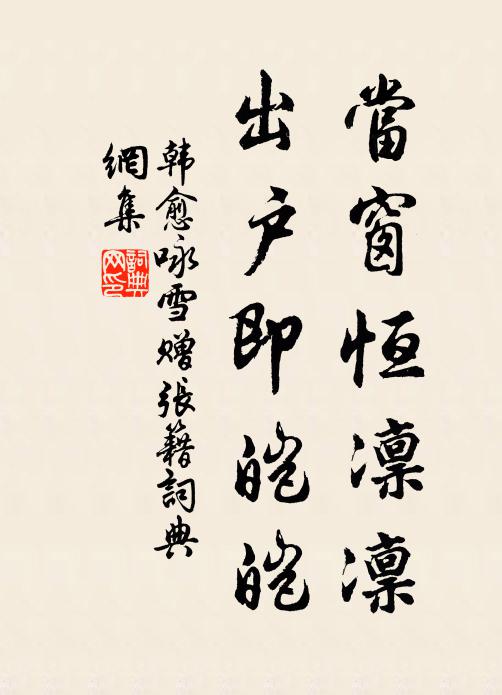 當窗恒凜凜
出户即皑皑
韩愈咏雪赠張籍詞典
網集
詞典
网印